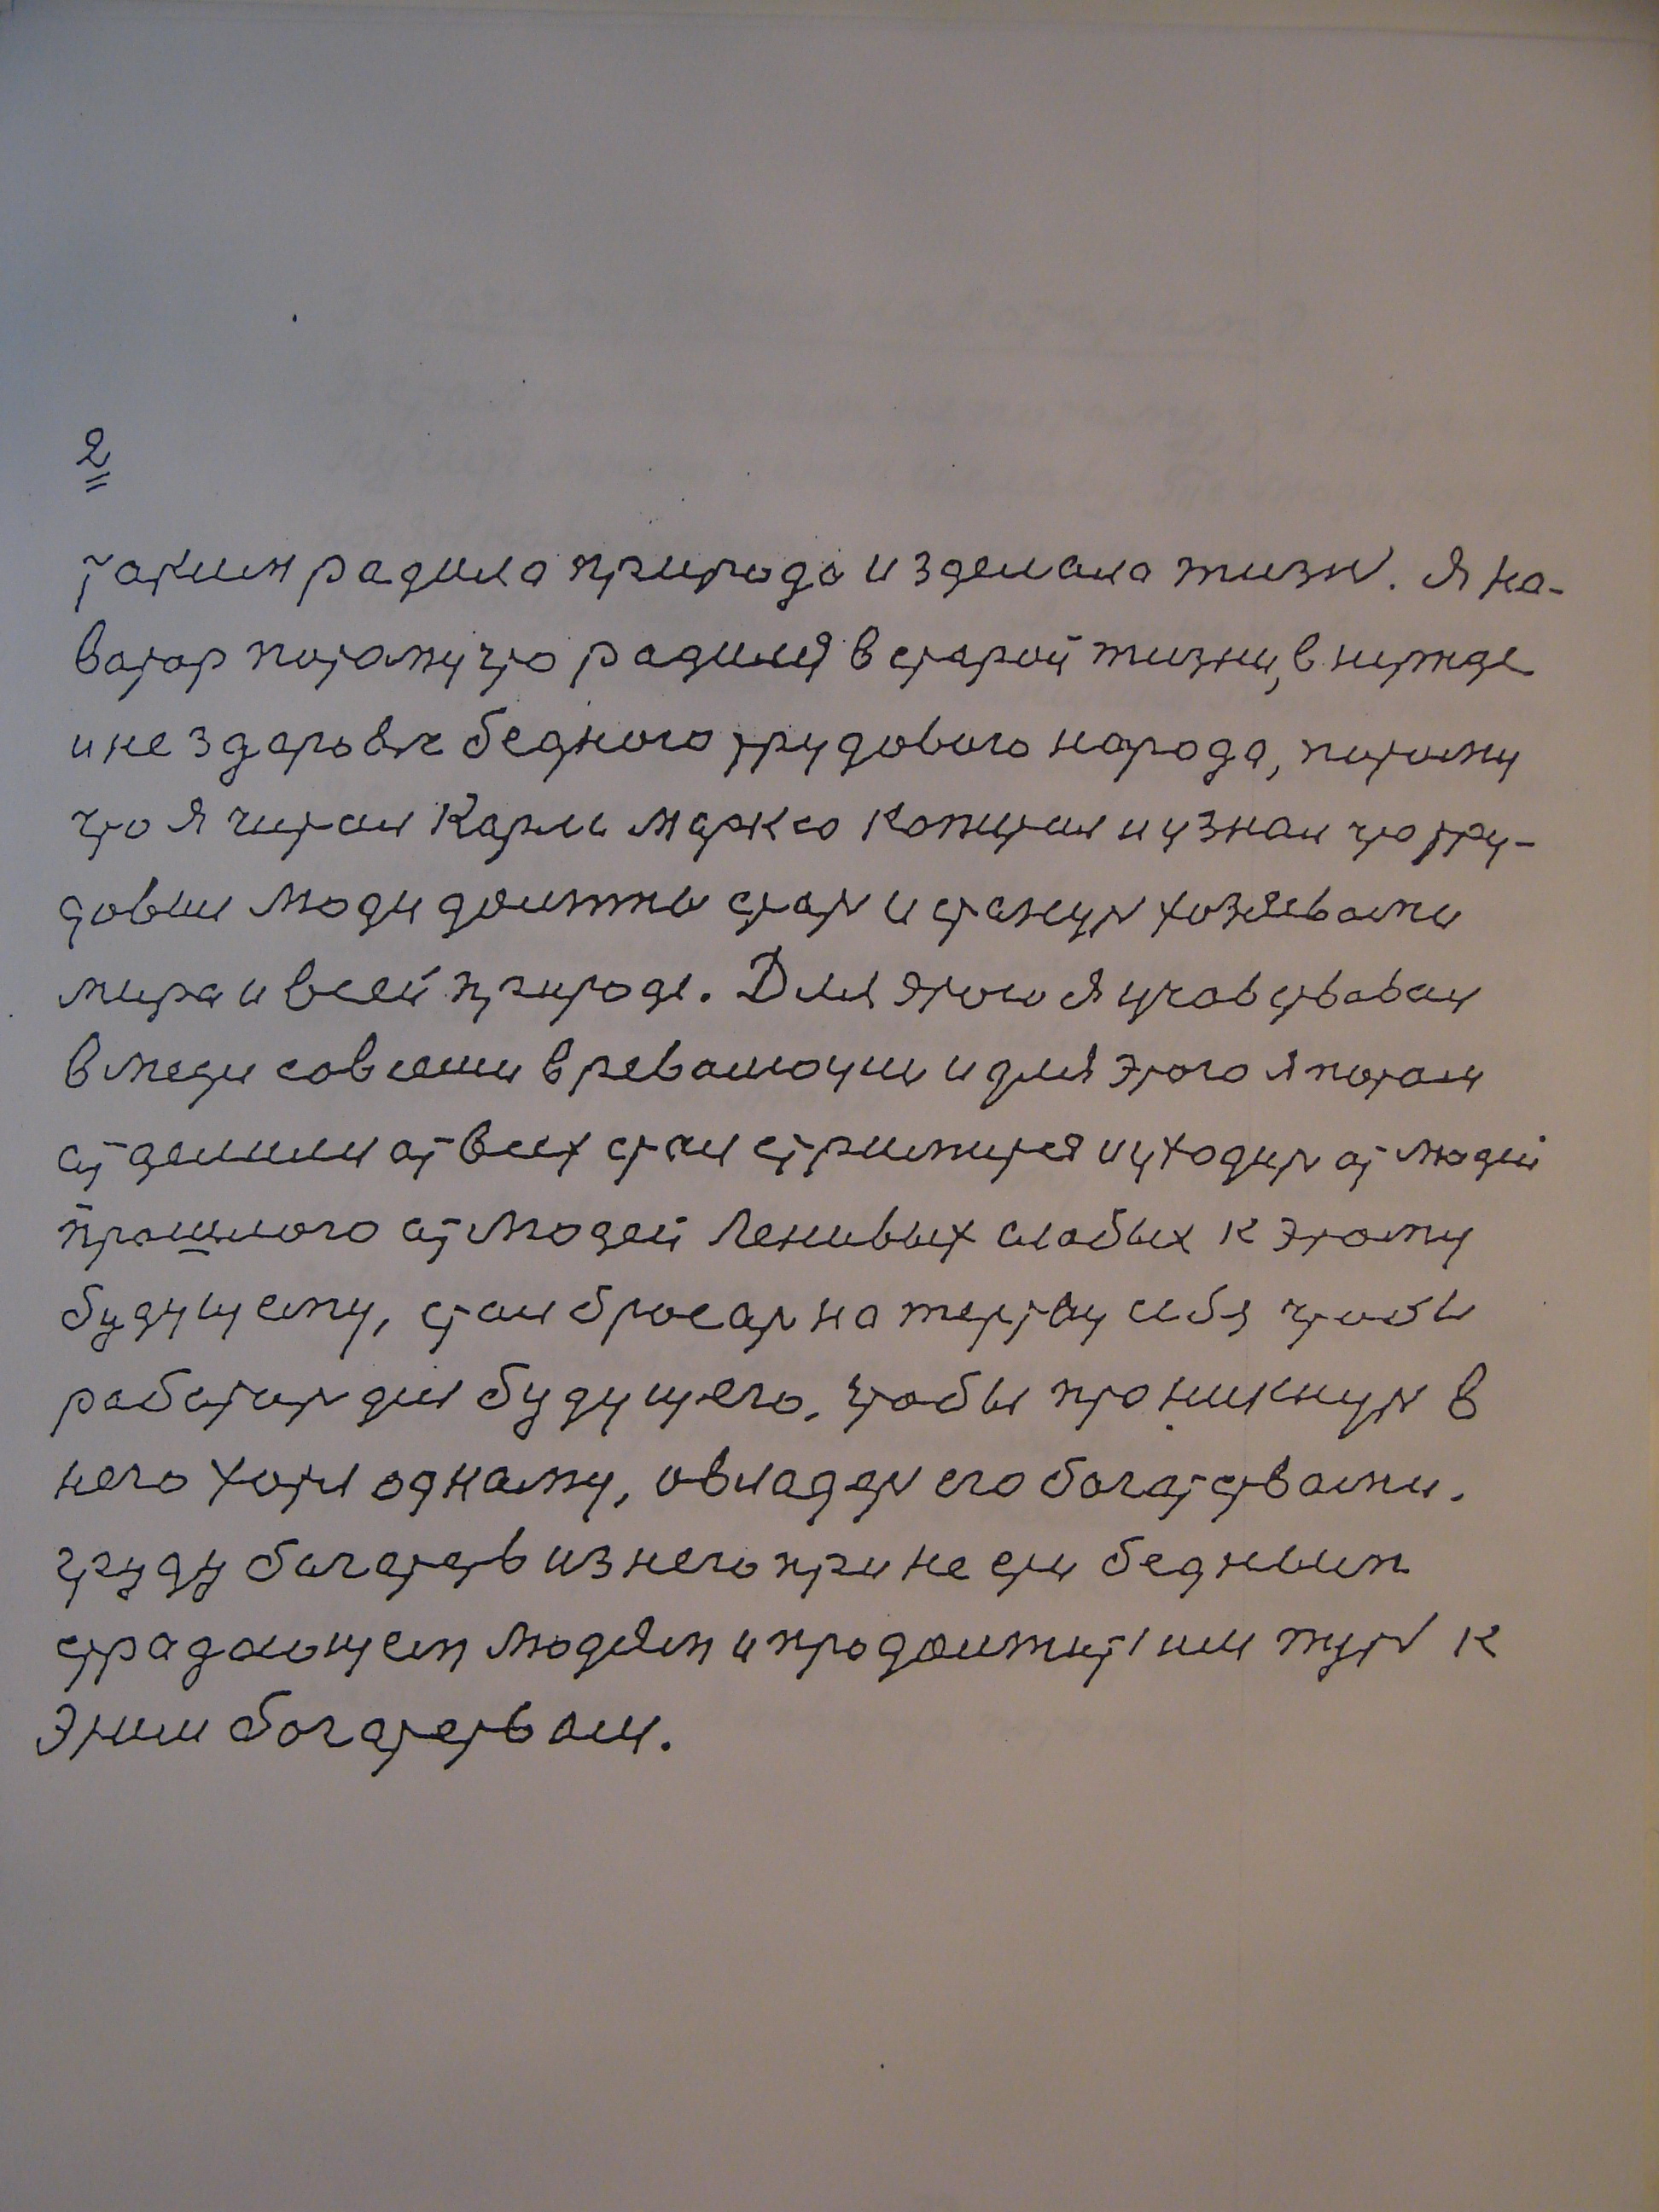 2
таким радила природа и зделала жизнь. Я на-
ватар потаму что радился в старой жизни, в нужде
и не здаровье бедного трудового народа, потому
что я читал Карла Маркса Капитал и узнал что тру-
довые люди должны стать и станут хозяевами
мира и всей природы. Для этого я учавствавал
в меди совсеми в революции и для этого я потам
от делился от всех стал стримится и уходить от людей
прошлого от людей ленивых слабых к этому
будущему, стал бросать на жертву себя чтобы
работать для будущего, чтобы проникнуть в
него хотя одному, овладеть его богатствами.
груду богатств из него принести бедным
страдающем людям и продолжить им путь к
этим богатствам.